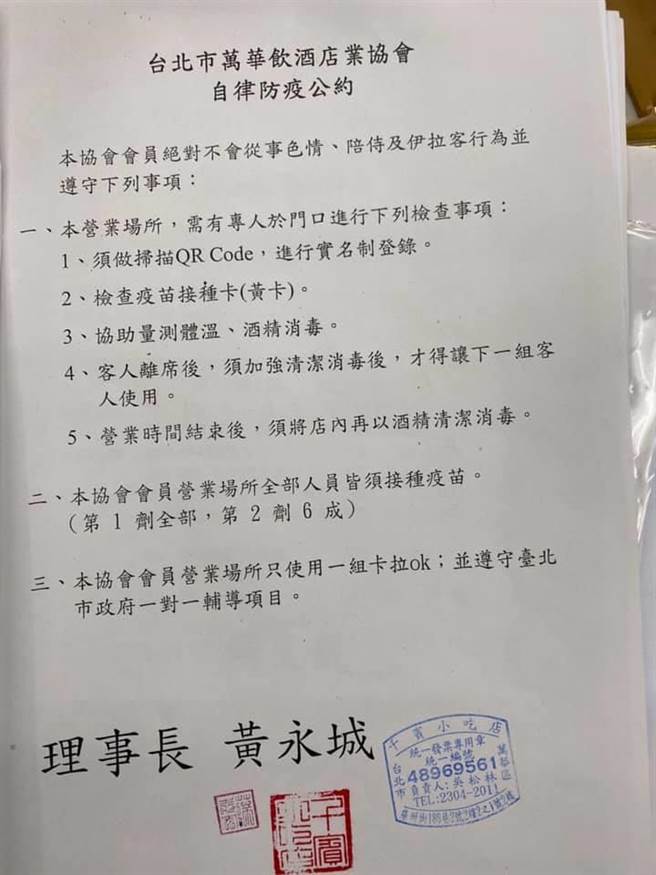 台北市萬華飲酒店業協會
自律防疫公約
本協會會員絕對不會從事色情、陪侍及伊拉客行為並
遵守下列事項：
一、本營業場所，需有專人於門口進行下列檢查事項：
1、須做掃描QR Code，進行實名制登錄。
2、檢查疫苗接種卡(黃卡)。
3、協助量測體溫、酒精消毒。
4、客人離席後，須加強清潔消毒後，才得讓下一組客
人使用。
5、營業時間結束後，須將店內再以酒精清潔消毒。
二、本協會會員營業場所全部人員皆須接種疫苗。
（第 1 劑全部，第 2 劑 6 成）
三、本協會會員營業場所只使用一組卡拉ok；並遵守臺北
市政府一對一輔導項目。
理事長 黃永城
千賓小吃店
統一發票專用章
統一編號
台北市
48969561
萬華區
負責人：吳松林
TEL:2304-2011
千賓